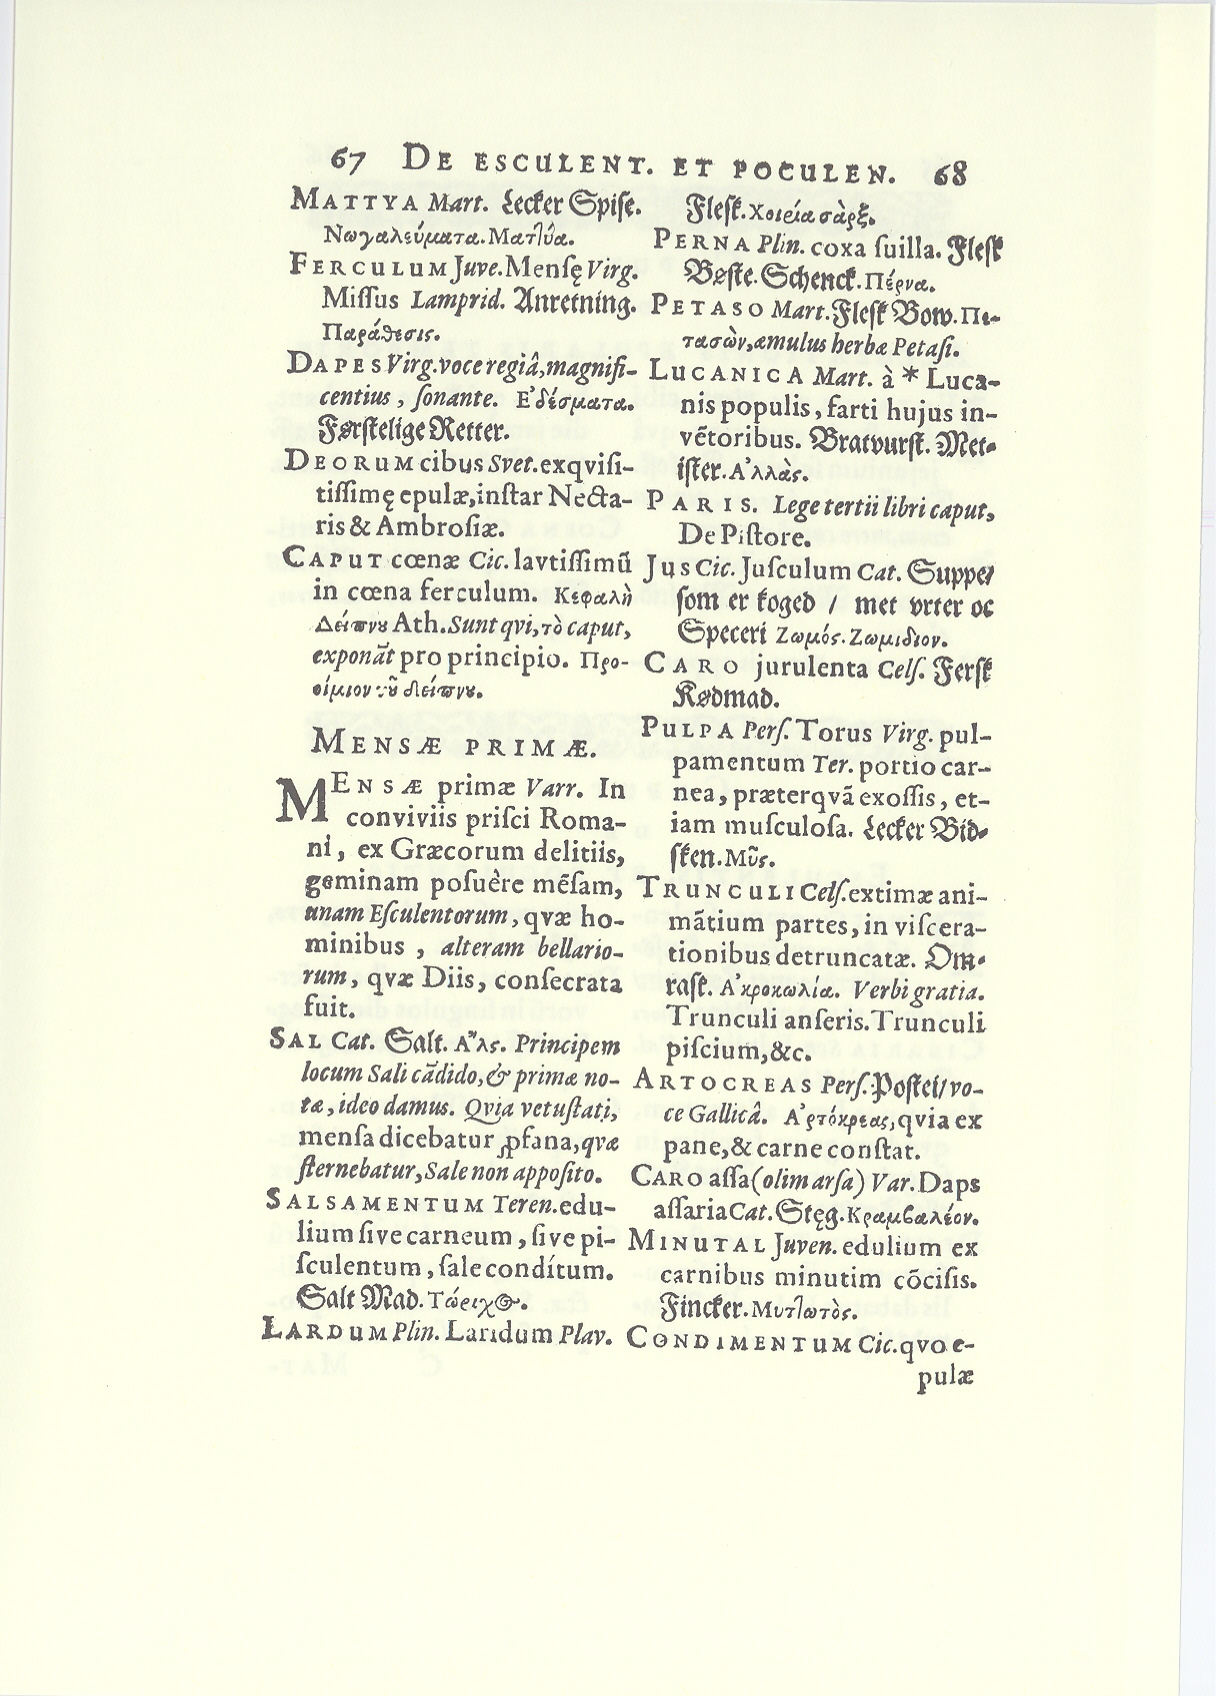 67 DE ESCULENT. ET POCULEN. 68
MATTYA Mart. Lecker Spiſe.
Νωγαλεύματα. Ματlύα.
FERCULUM Juve. Menſę Virg.
Miſſus Lamprid. Anretning.
Παράθεσις.
DAPES Virg. voce regiâ, magnifi-
centius, ſonante. Ε᾿δέσματα.
Førſtelige Retter.
DEORUM cibus Svet. exqviſi-
tiſſimę epulæ, inſtar Necta-
ris & Ambroſiæ.
CAPUT cœnæ Cic. lavtiſſimũ
in cœna ferculum. Κεφαλὴ
Δείπνȣ Ath. Sunt qvi, τὸ caput,
exponãt pro principio. Προ-
οίμιον τȣ͂ δείπνȣ.
MENSÆ PRIMÆ.
MENSÆ primæ Varr. In
conviviis priſci Roma-
ni, ex Græcorum delitiis,
geminam poſuère mẽſam,
unam Eſculentorum, qvæ ho-
minibus, alteram bellario-
rum, qvæ Diis, conſecrata
fuit.
SAL Cat. Salt. Α῞λς. Principem
locum Sali cãdido, & primæ no-
tæ, ideo damus. Qvia vetuſtati,
menſa dicebatur ꝓfana, qvæ
ſternebatur, Sale non appoſito.
SALSAMENTUM Teren. edu-
lium ſive carneum, ſive pi-
ſculentum, ſale condítum.
Salt Mad. Τάριχ⊙.
LARDUM Plin. Laridum Plav.
Fleſk. Χοιρεία σὰρξ.
PERNA Plin. coxa ſuilla. Fleſk
Bøſte. Schenck. Πέρνα.
PETASO Mart. Fleſk Bow. Πε-
τασὼν, æmulus herbæ Petaſi.
LUCANICA Mart. à * Luca-
nis populis, farti hujus in-
vẽtoribus. Bratvurſt. Met-
iſter. Α᾿λλὰς.
PARIS. Lege tertii libri caput,
De Piſtore.
JUS Cic. Juſculum Cat. Suppe/
ſom er koged / met vrter oc
Speceri Ζωμός. Ζωμιδιον.
CARO jurulenta Celſ. Ferſk
Kødmad.
PULPA Perſ. Torus Virg. pul-
pamentum Ter. portio car-
nea, præterqvã exoſſis, et-
iam muſculoſa. Lecker Bid-
ſken. Μῦς.
TRUNCULI Celſ. extimæ ani-
mãtium partes, in viſcera-
tionibus detruncatæ. Om-
raſt. Α᾿κροκωλία. Verbi gratia.
Trunculi anſeris. Trunculi
piſcium, &c.
ARTOCREAS Perſ. Poſtei/ vo-
ce Gallicâ. Α᾿ρτόκρεας, qvia ex
pane, & carne conſtat.
CARO aſſa (olim arſa) Var. Daps
aſſaria Cat. Stęg. Κραμβαλέον.
MINUTAL Juven. edulium ex
carnibus minutim cõciſis.
Fincker. Μυτlωτὸς.
CONDIMENTUM Cic. qvo e-
pulæ